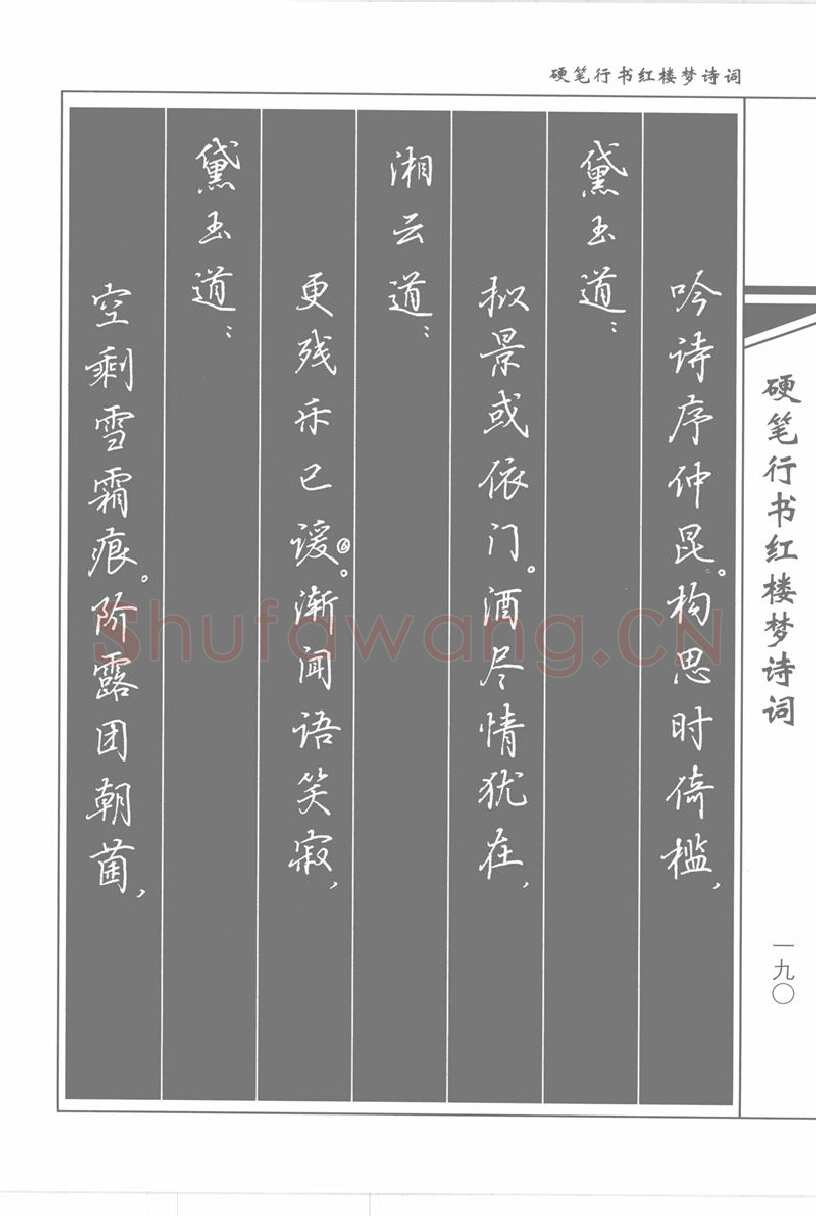 硬笔行书红楼梦诗词
吟诗序仲昆。构思时倚槛,
黛玉道:
拟景或依门。酒尽情犹在,
湘云道:
更残乐已谖⑥。渐闻语笑寂,
黛玉道:
空剩雪霜痕。阶露团朝菌,
硬笔行书红楼梦诗词
一九〇
Shufawang.CN